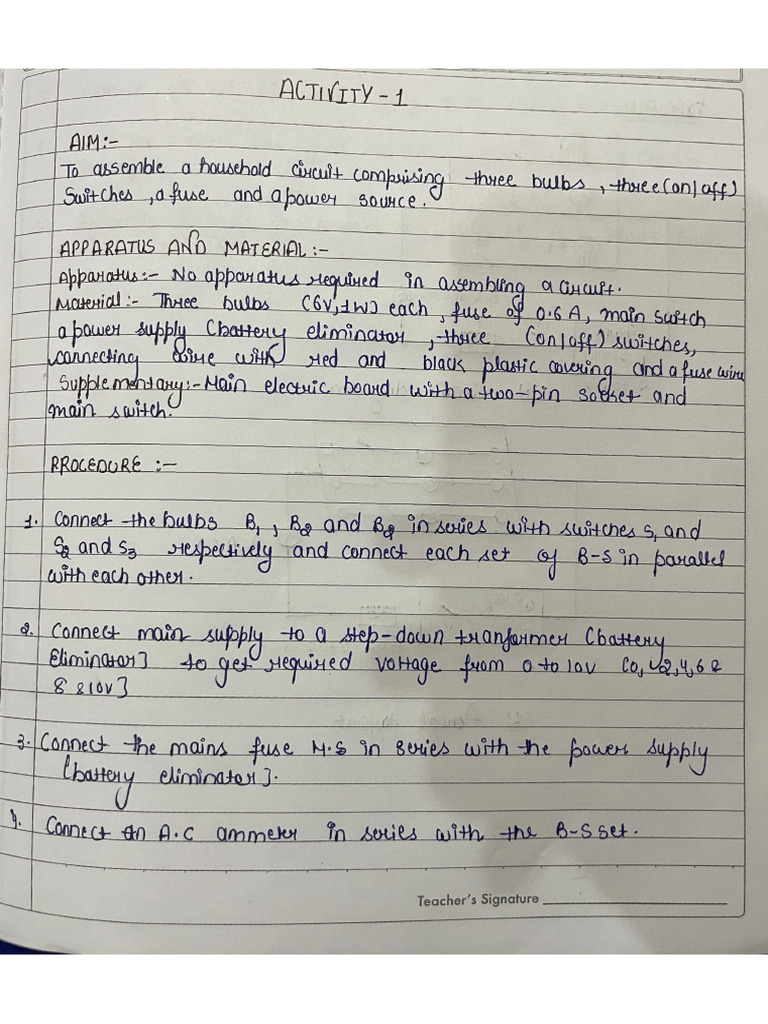 ACTIVITY - 1
AIM:-
To assemble a household circuit comprising three bulbs, three (on/off)
Switches, a fuse and a power source.
APPARATUS AND MATERIAL:-
Apparatus:- No apparatus required in assembling a circuit.
Material:- Three bulbs (6V, 1W) each, fuse of 0.6 A, main switch
a power supply (battery eliminator, three (on/off) switches,
connecting wire with red and black plastic covering and a fuse wire
Supplementary:- Main electric board with a two-pin socket and
main switch.
PROCEDURE :-
1. Connect the bulbs B1, B2 and B2 in series with switches S, and
S2 and S3 respectively and connect each set of B-S in parallel
with each other.
2. Connect main supply to a step-down tranformer (battery
Eliminator] to get required voltage from 0 to 10v (0, 2, 4, 6 &
8 & 10V]
3. Connect the mains fuse M.S in series with the power supply
(battery eliminator].
4. Connect an A.C ammeter in series with the B-S set.
Teacher's Signature